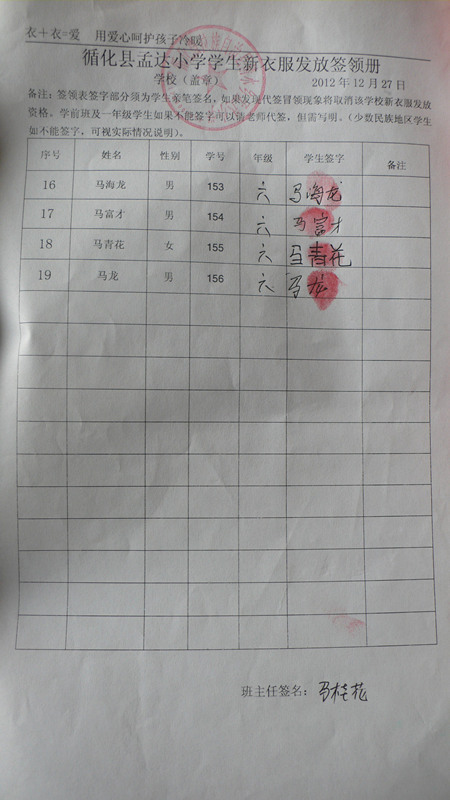 衣+衣=爱 用爱心呵护孩子冷暖
循化县孟达小学学生新衣服发放签领册
学校（盖章） 2012年12月27日
备注：签领表签字部分须为学生亲笔签名，如果发现代签冒领现象将取消该学校新衣服发放
资格。学前班及一年级学生如果不能签字可以请老师代签，但需写明。（少数民族地区学生
如不能签字，可视实际情况说明）。
序号 姓名 性别 学号 年级 学生签字 备注
16 马海龙 男 153 六 马海龙
17 马富才 男 154 六 马富才
18 马青花 女 155 六 马青花
19 马龙 男 156 六 马龙
班主任签名：马桂花